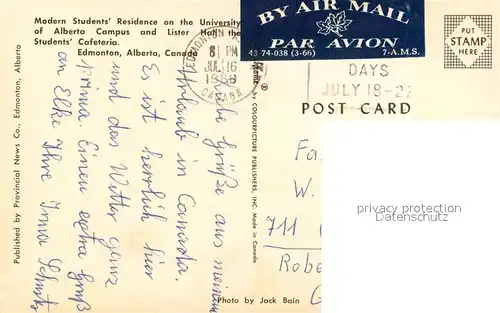 Modern Students' Residence on the University
of Alberta Campus and Lister Hall the
Students' Cafeteria.
Edmonton, Alberta, Canada
BY AIR MAIL
PAR AVION
43 74-038 (3-66) 7-A.M.S.
PUT
STAMP
HERE
EDMONTON
8 PM
JUL 16
1968
CANADA
DAYS
JULY 18-27
POST CARD
Liebe Grüße aus meinem
Urlaub in Canada.
Es ist herrlich hier
und das Wetter ganz
prima. Einen extra Gruß
an Elke Ihre Irma
Published by Provincial News Co., Edmonton, Alberta
by COLOURPICTURE PUBLISHERS, INC. Made in Canada
®
Photo by Jack Bain
Fa.
W.
711
Robe
G
privacy protection
Datenschutz